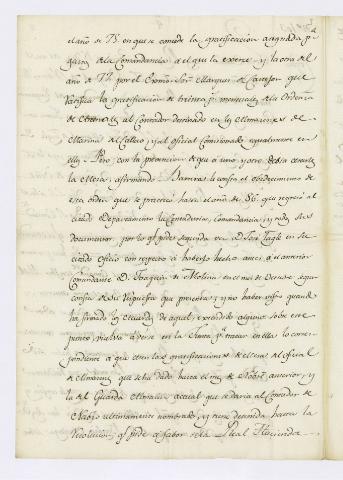 el año de 75. en que se concede la gratificacion asignada p.ª
gastos de la Comandancia a el que la exerce, y la otra del
año de 77. por el Exmo. Sor. Marques de
ratifica la gratificacion de treinta p.s mensuales de la Ordenanza
de al Contador destinado en los Almazenes de
Marina del Callao, y al oficial Comisionado igualmente en
ellos. Pero con la prevencion de que a uno y otro
la Mesa, afirmando no consta el obedecimiento de
esta orden que se practicó hasta el año de 86. que regresó al
citado Departamento la Contaduria, Comandancia, y todos sus
documentos, por lo q.e pide segunda vez D. Josef Tagle en su
citado Oficio con respecto a haberlo hecho antes á el anterior
Comandante D. Joaquin de Molina en el mes de
consta de su respuesta que presenta, y no haber visto quando
ha firmado los acuerdos de aquel, extendido alguno sobre este
punto, vuelva a verse en la Junta p.ª tratar en ella lo corres-
pondiente a que cesen las gratificaciones de Mesa de oficial
de Almazenes que se ha dado hasta el mes de Nobre. anterior, y
la de Guarda Almazen actual que se daria al Contador de
Navio ultimamente nombrado, y tiene detenida hasta la
Resolucion, q.e pide a fabor de la Real Hacienda